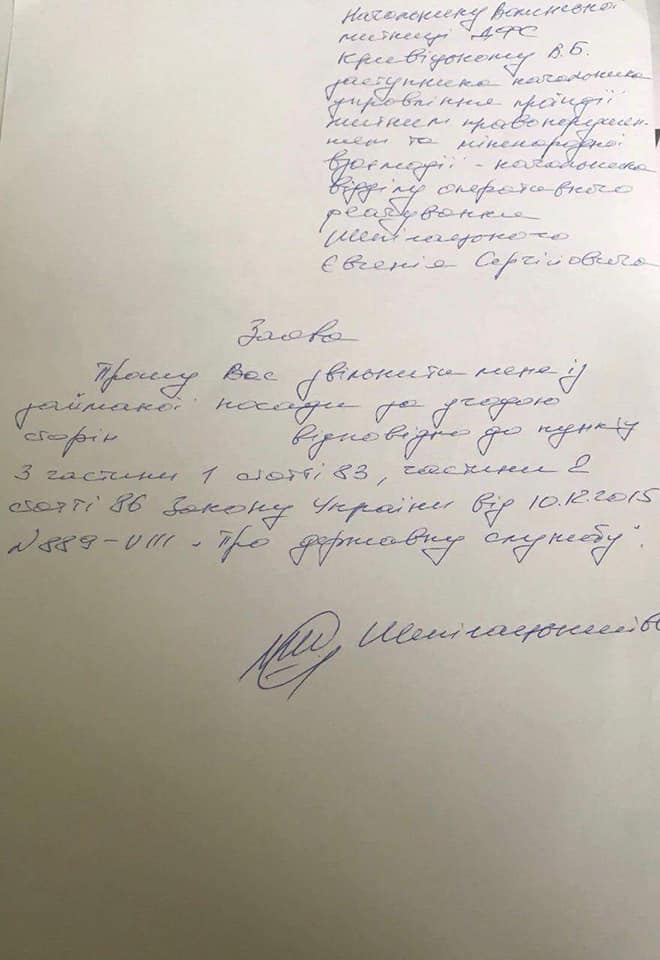 Начальнику Волинської
митниці ДФС
Кривіцькому В.Б.
заступника начальника
управління протидії
митним правопорушен-
ням та міжнародної
взаємодії - начальника
відділу оперативного
реагування
Шепілацького
Євгенія Сергійовича
Заява
Прошу Вас звільнити мене із
займаної посади за угодою
сторін відповідно до пункту
3 частини 1 статті 83, частини 2
статті 86 Закону України від 10.12.2015
№889-VIII „Про державну службу".